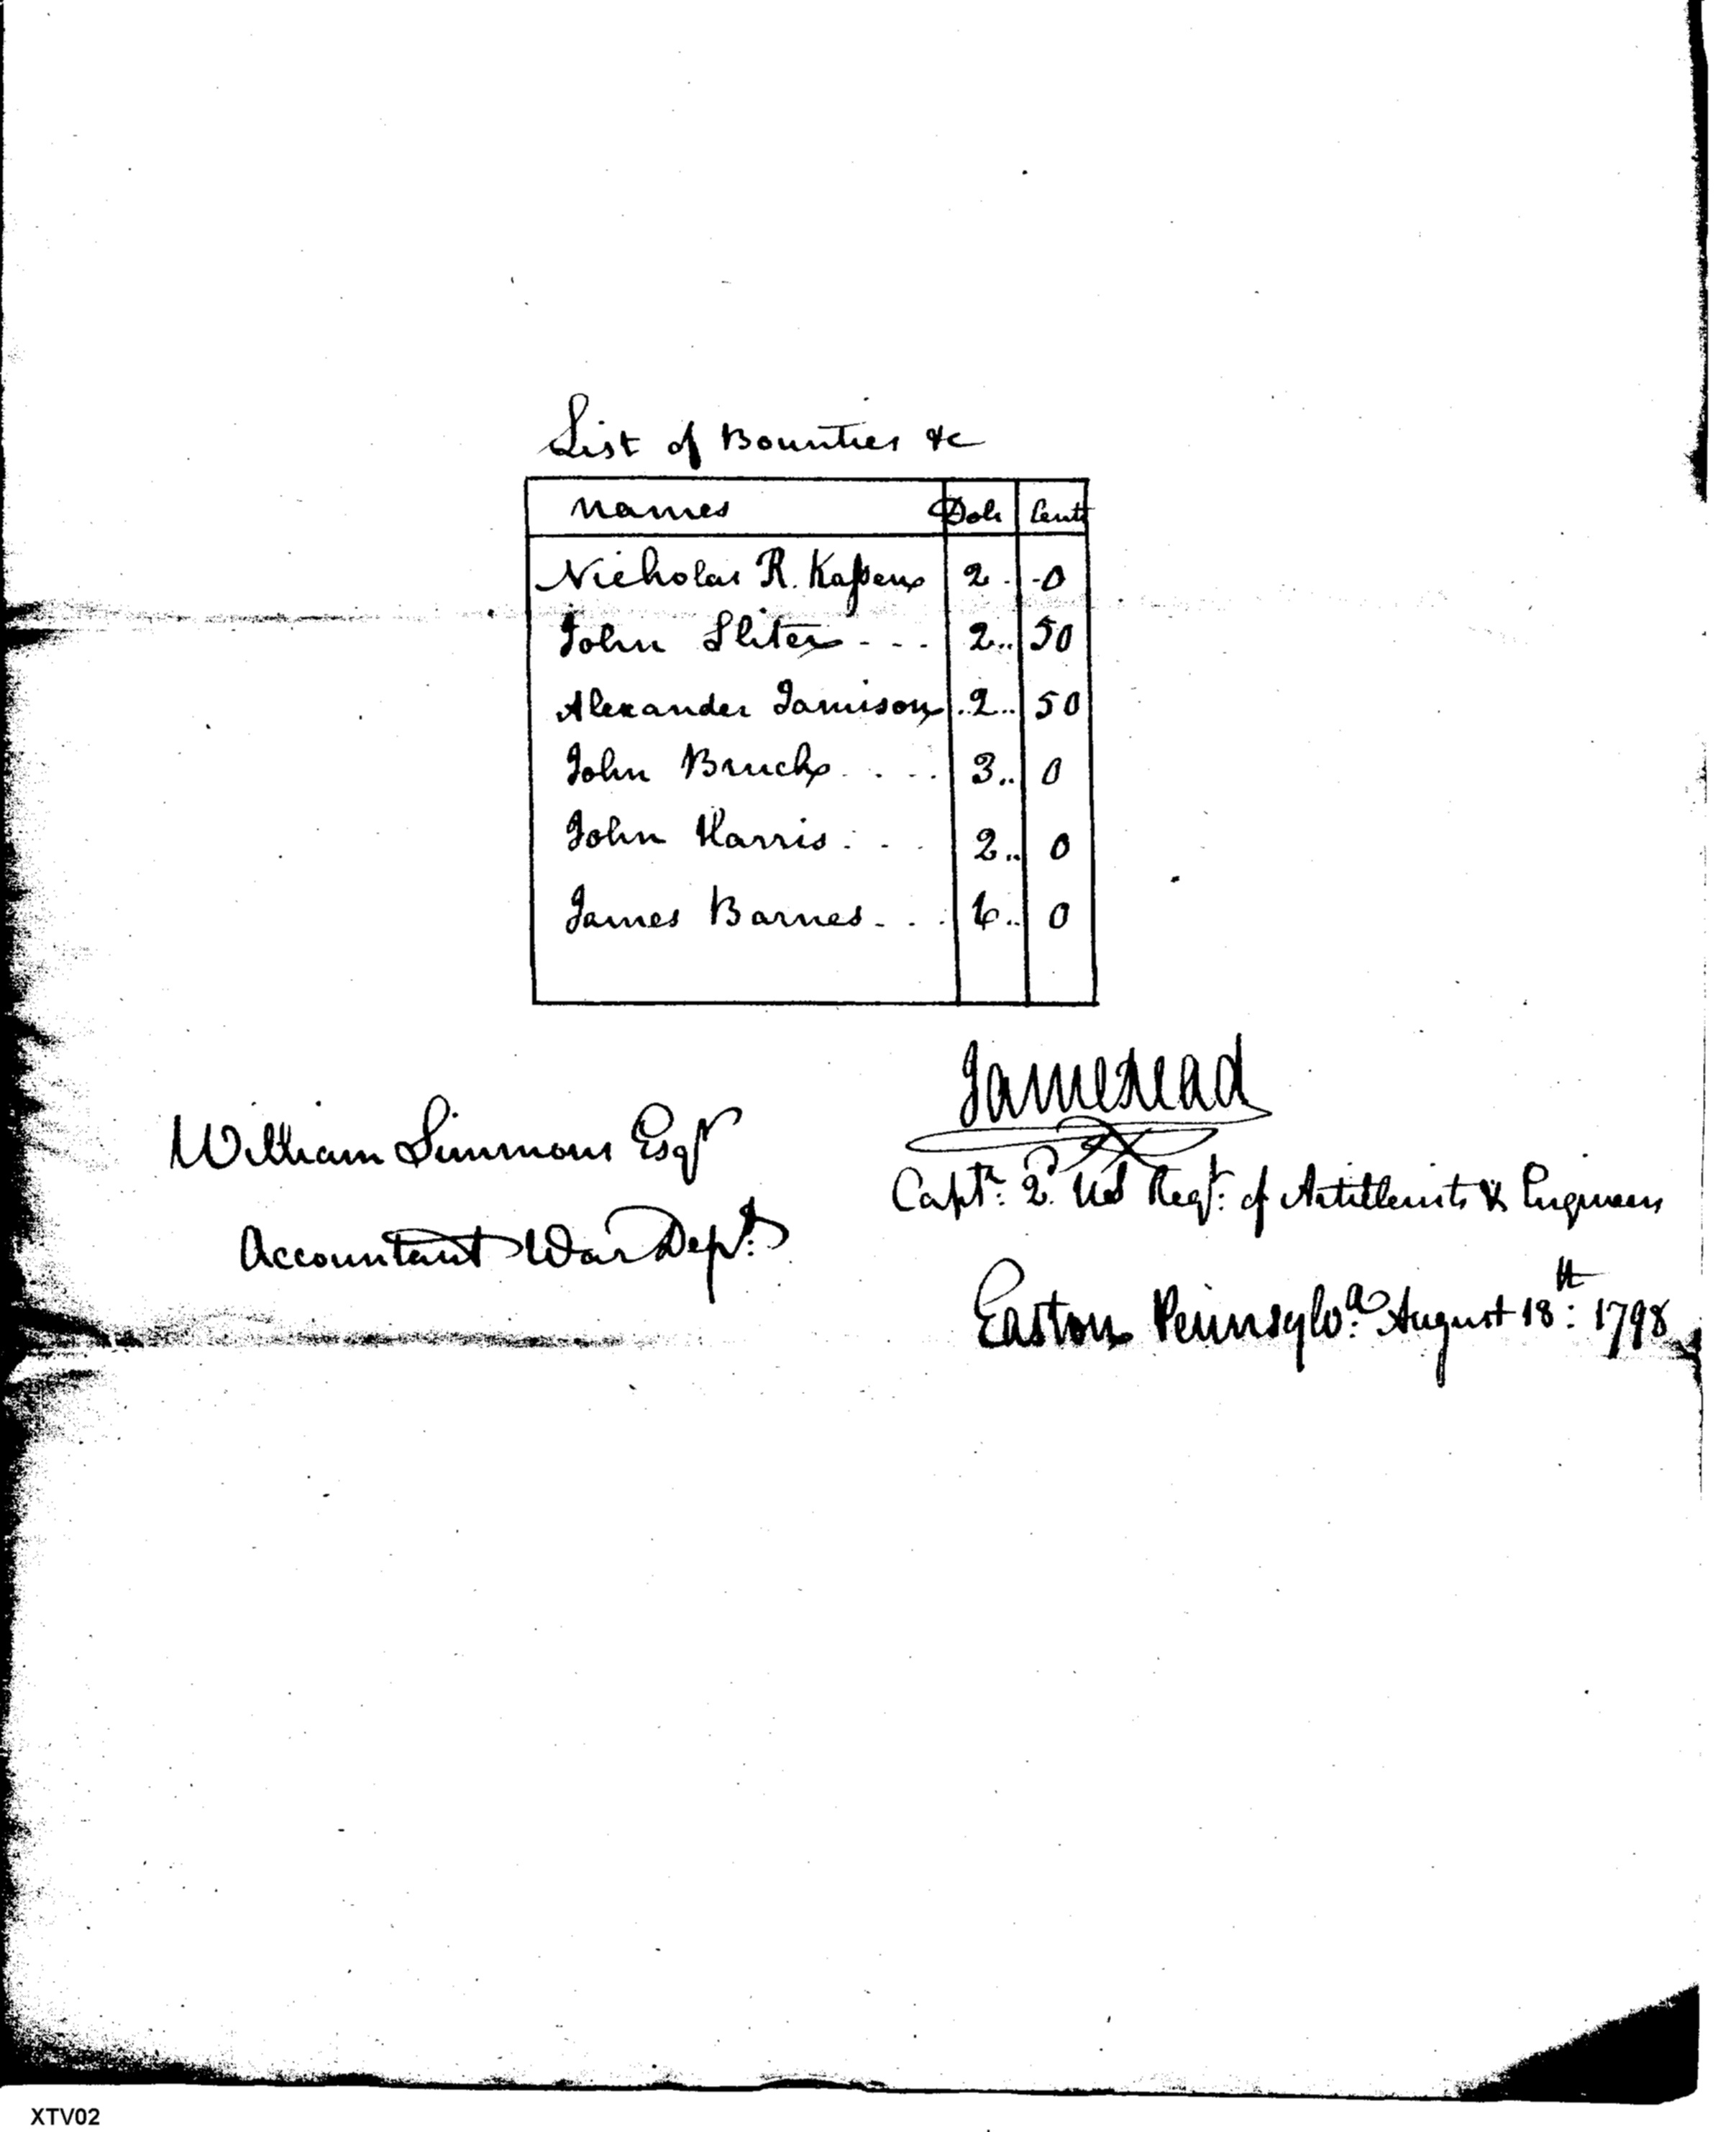 List of Bounties &c
Names Dols Cents
Nicholas R. Kassen 2 . -0
John Sliter - - - 2.. 50
Alexander Jamison ..2.. 50
John Bruch . . . . 3.. 0
John Harris . . . 2.. 0
James Barnes - . . 6.. 0
James Read
William Simmons Esqr
Captn: 2d. US Regt: of Artillerists & Engineers
Accountant War Dept:
Easton Pennsylva: August 18th: 1798
XTV02